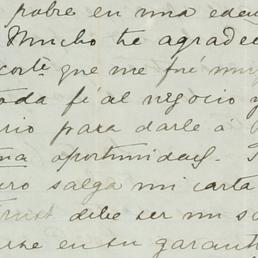 pobre en una eden
Mucho te agradec
corte. que me fué muy
toda fé al negocio y
rio para darle á
ma oportunidad.
ero salga mi carta
Trust debe ser mi s
erse en su garant